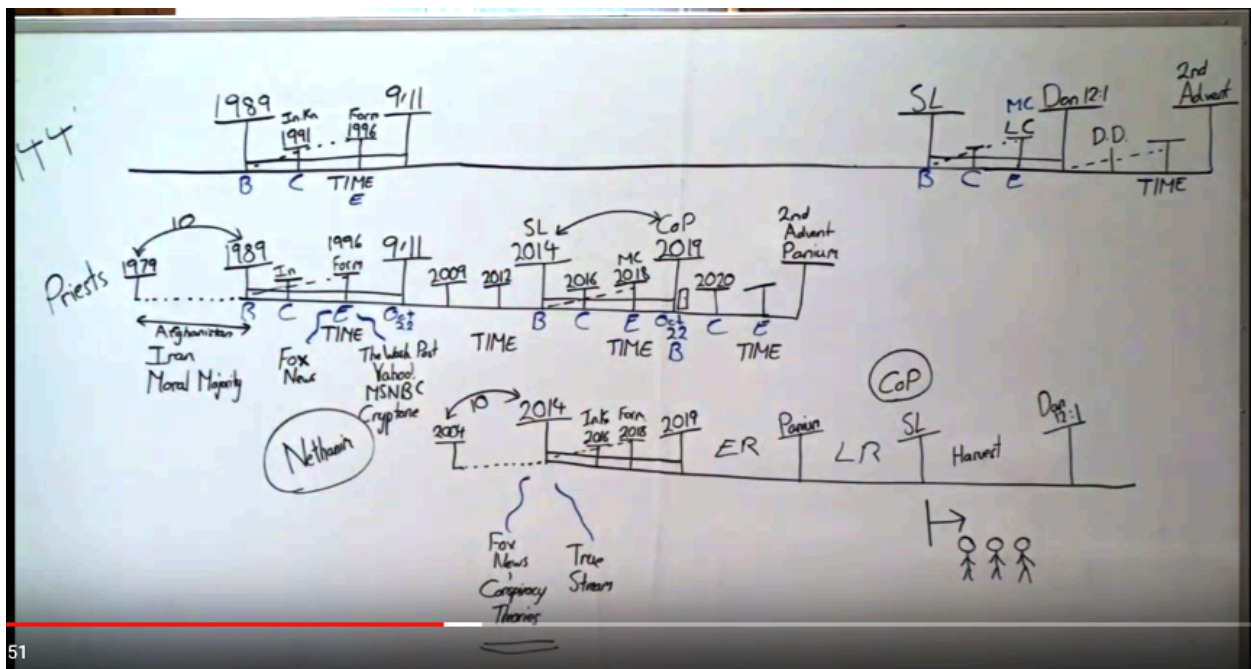 144
1989
In.Kn
1991
Form
1996
9/11
B C TIME
E
SL
MC
LC
Dan 12:1
D.D.
2nd
Advent
B C E TIME
Priests
10
1979
1989
In
1996
Form
9/11
2009
2012
SL
2014
2016
MC
2018
CoP
2019
2020
2nd
Advent
Panium
B C E Oct
22
TIME
TIME
B C E Oct
22
B
TIME
B C E
TIME
Afghanistan
Iran
Moral Majority
Fox
News
The Wash Post
Yahoo!
MSNBC
Nethanim
10
2004
2014
In.Kn
2016
Form
2018
2019
ER
Panium
LR
CoP
SL
Harvest
Dan
12:1
Fox
News
Conspiracy
Theories
True
Stream
51